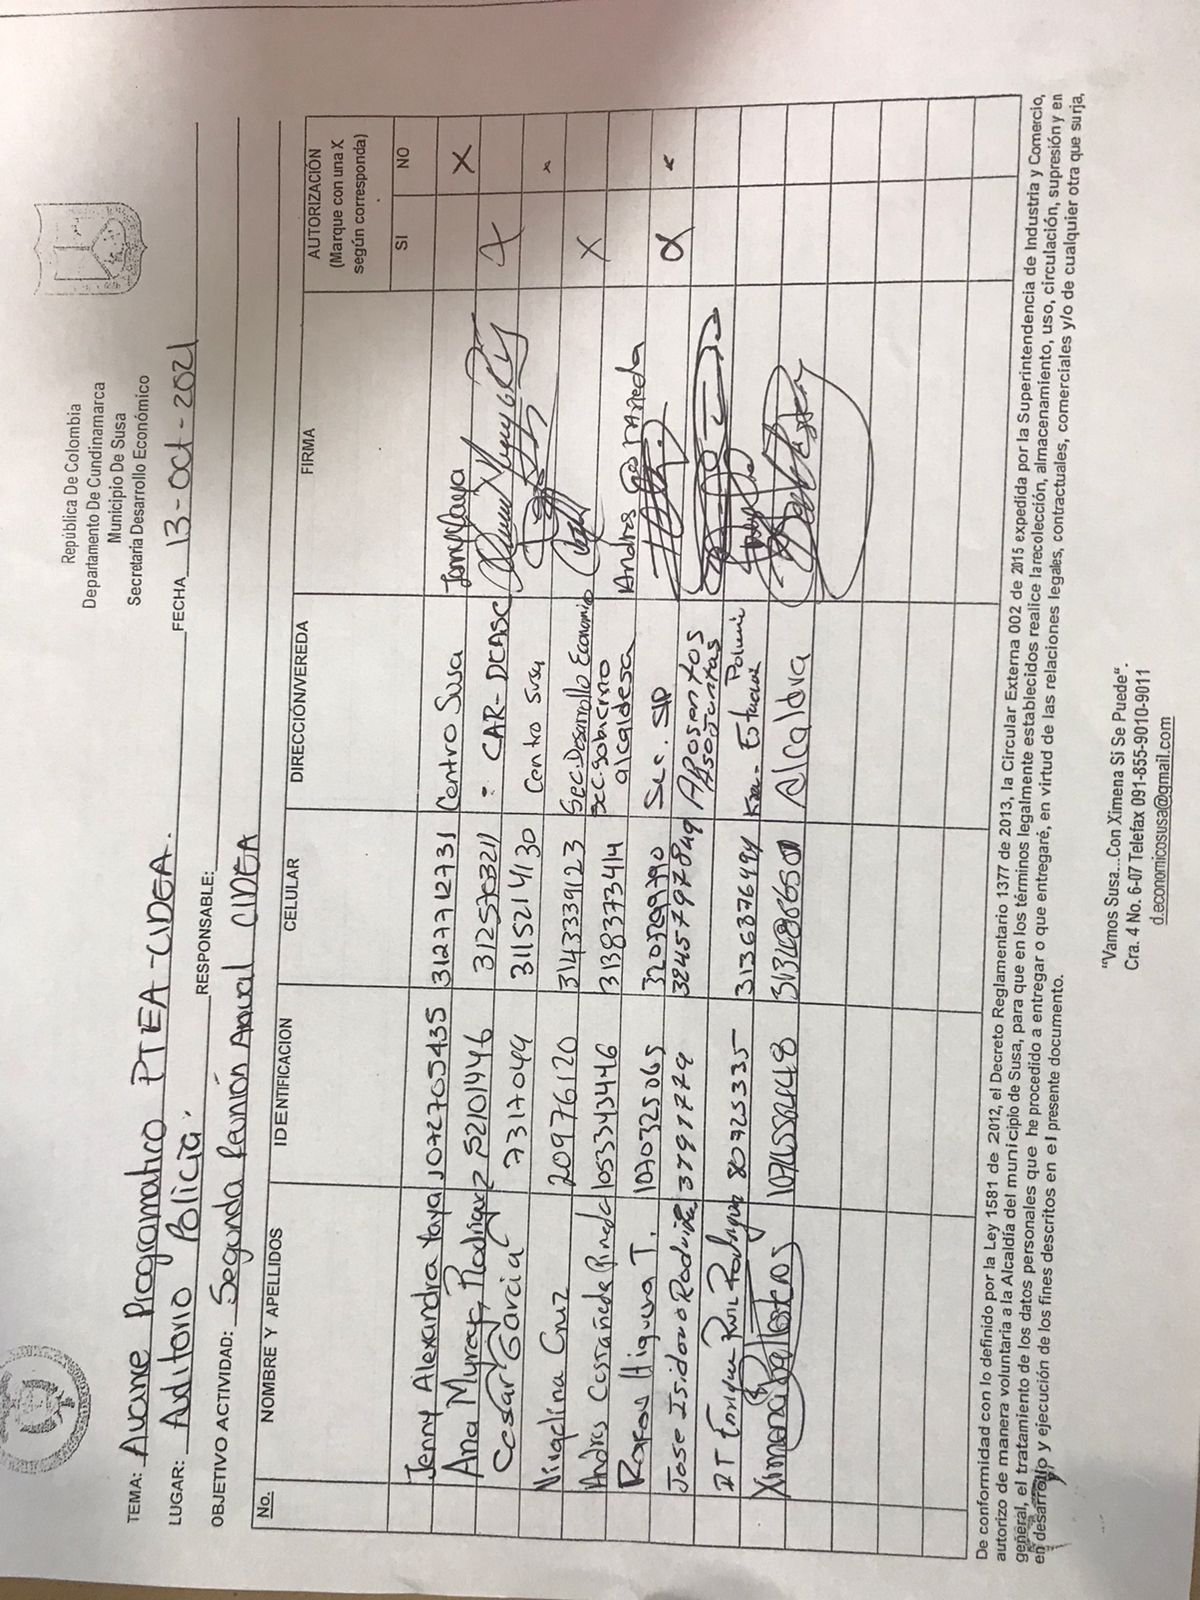 República De Colombia
Departamento De Cundinamarca
Municipio De Susa
Secretaria Desarrollo Económico
TEMA: Avance Programatico PTEA-CIDEA. FECHA 13-oct-2021
LUGAR: Auditorio Policia. RESPONSABLE:
OBJETIVO ACTIVIDAD: Segunda Reunión Anual CIDEA
No. NOMBRE Y APELLIDOS IDENTIFICACION CELULAR DIRECCION/VEREDA FIRMA AUTORIZACIÓN
(Marque con una X
según corresponda)
SI NO
Jenny Alexandra Yaya 1072705435 3127712731 Centro Susa X
Ana Myreya Rodriguez 52101446 CAR-DCASC X
Cesar Garcia 7317049 3115214130 Centro Susa x
Nivaelina Cruz 20976120 3143339123 Sec.Desarrollo Economico X
Andres Castañeda Pineda 1053343446 3138373414 sec.gobierno
alcaldesa Andres Castañeda
Higuera T. 1070325065 Sec. x
Jose Isidoro 3245797849 Aposentos
Asojuntas
IT Enrique Ruiz Rodriguez 80725335 3136376494 Estacion
Ximena Ballesteros Alcaldia
De conformidad con lo definido por la Ley 1581 de 2012, el Decreto Reglamentario 1377 de 2013, la Circular Externa 002 de 2015 expedida por la Superintendencia de Industria y Comercio,
autorizo de manera voluntaria a la Alcaldía del municipio de Susa, para que en los términos legalmente establecidos realice la recolección, almacenamiento, uso, circulación, supresión y en
general, el tratamiento de los datos personales que he procedido a entregar o que entregaré, en virtud de las relaciones legales, contractuales, comerciales y/o de cualquier otra que surja,
en desarrollo y ejecución de los fines descritos en el presente documento.
"Vamos Susa...Con Ximena Si Se Puede".
Cra. 4 No. 6-07 Telefax 091-855-9010-9011
d.economicosusa@gmail.com